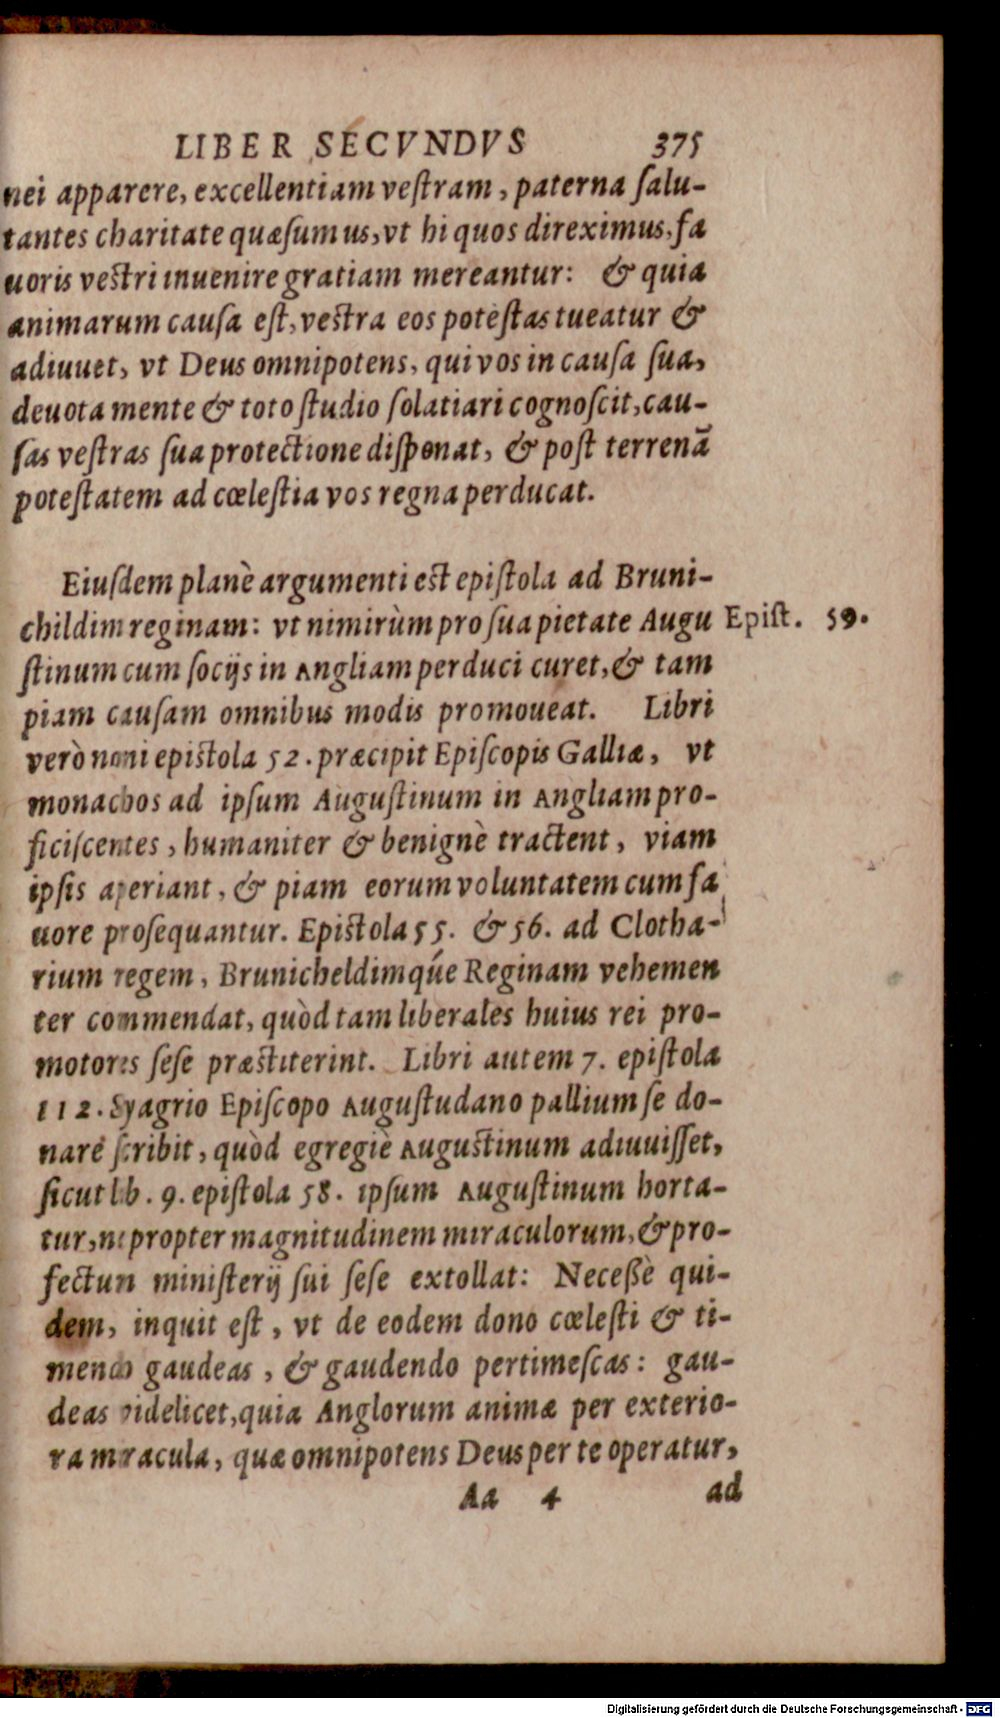 LIBER SECVNDVS 375
nei apparere, excellentiam veſtram, paterna ſalu-
tantes charitate quæſumus, vt hi quos direximus, fa
uoris veſtri inuenire gratiam mereantur: & quia
animarum cauſa eſt, veſtra eos poteſtas tueatur &
adiuuet, vt Deus omnipotens, qui vos in cauſa ſua,
deuota mente & toto ſtudio ſolatiari cognoſcit, cau-
ſas veſtras ſua protectione diſponat, & poſt terrenã
poteſtatem ad cœleſtia vos regna perducat.
Eiuſdem planè argumenti eſt epiſtola ad Bruni-
childim reginam: vt nimirùm pro ſua pietate Augu
Epiſt. 59.
ſtinum cum ſocijs in Angliam perduci curet, & tam
piam cauſam omnibus modis promoueat. Libri
verò noni epiſtola 52. præcipit Epiſcopis Galliæ, vt
monachos ad ipſum Auguſtinum in Angliam pro-
ficiſcentes, humaniter & benignè tractent, viam
ipſis aperiant, & piam eorum voluntatem cum fa
uore proſequantur. Epiſtola 55. & 56. ad Clotha-
rium regem, Brunicheldimq́ue Reginam vehemen
ter commendat, quòd tam liberales huius rei pro-
motores ſeſe præſtiterint. Libri autem 7. epiſtola
112. Syagrio Epiſcopo Auguſtudano pallium ſe do-
nare ſcribit, quòd egregiè Auguſtinum adiuuiſſet,
ſicut lib. 9. epiſtola 58. ipſum Auguſtinum horta-
tur, ne propter magnitudinem miraculorum, & pro-
fectum miniſterij ſui ſeſe extollat: Neceßè qui-
dem, inquit eſt, vt de eodem dono cœleſti & ti-
mendo gaudeas, & gaudendo pertimeſcas: gau-
deas videlicet, quia Anglorum animæ per exterio-
ra miracula, quæ omnipotens Deus per te operatur,
Aa 4 ad
Digitalisierung gefördert durch die Deutsche Forschungsgemeinschaft - DFG